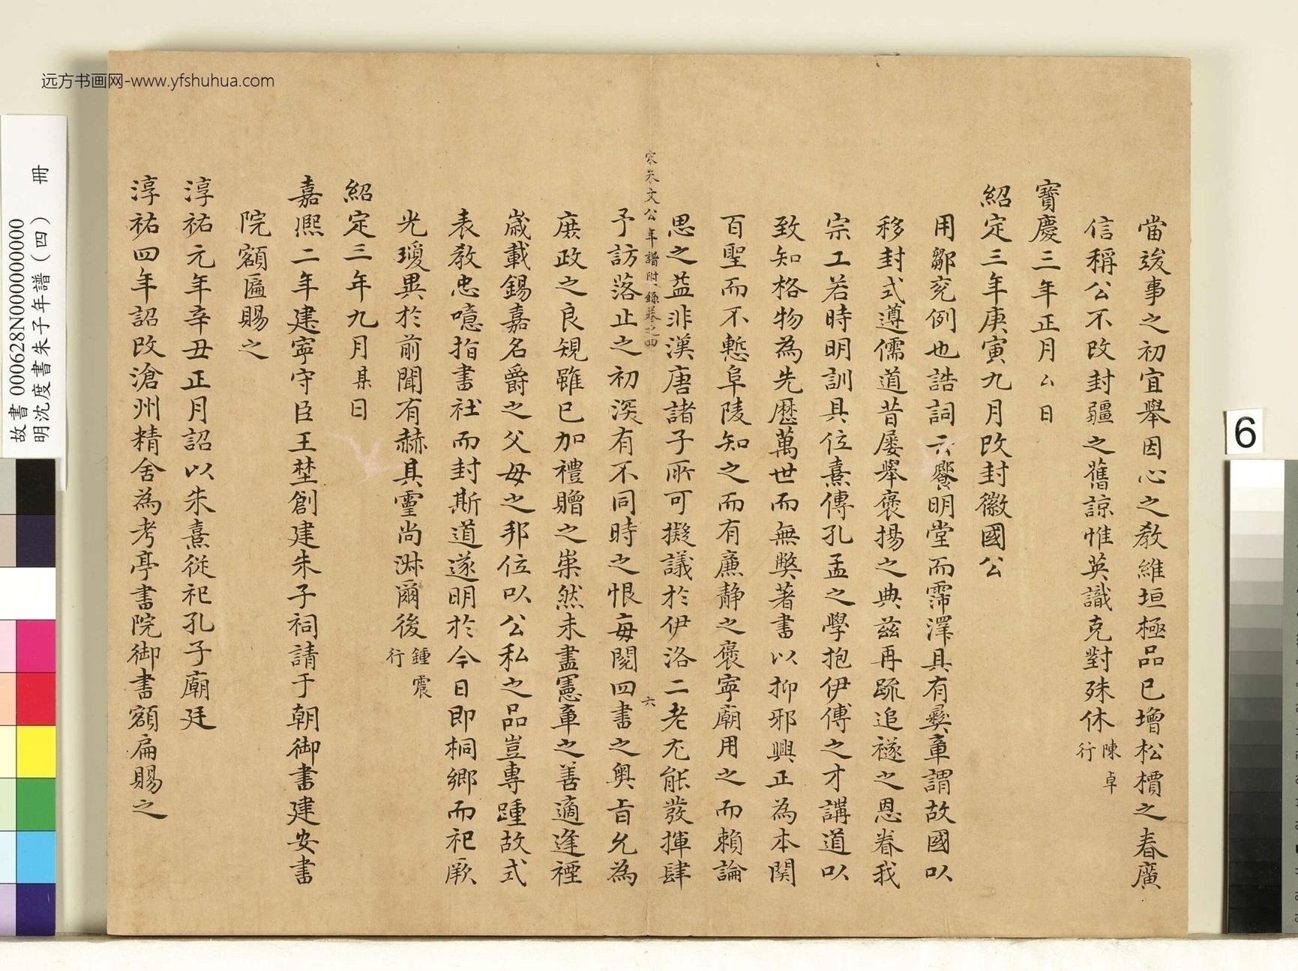 远方书画网-www.yfshuhua.com
當竣事之初宜舉因心之教維垣極品已增松檟之春廣
信稱公不改封疆之舊諒惟英識克對殊休陳卓行
寶慶三年正月厶日
紹定三年庚寅九月改封徽國公
用鄒兗例也誥詞云饗明堂而霈澤具有彝章謂故國以
移封式遵儒道昔屢舉褒揚之典茲再疏追襚之恩眷我
宗工若時明訓具位熹傳孔孟之學抱伊傅之才講道以
致知格物為先歷萬世而無獘著書以抑邪興正為本関
百聖而不慙阜陵知之而有廉静之褒寧廟用之而賴論
思之益非漢唐諸子所可擬議於伊洛二老尤能發揮肆
宋朱文公年譜附錄卷之四
六
予訪落止之初深有不同時之恨每閱四書之奧旨允為
庶政之良規雖已加禮贈之崇然未盡憲章之善適逢禋
歲載錫嘉名爵之父母之邦位以公私之品豈專踵故式
表教忠噫指書社而封斯道遂明於今日即桐鄉而祀厥
光瓊異於前聞有赫其靈尚淋爾後鍾震行
紹定三年九月某日
嘉熈二年建寧守臣王埜創建朱子祠請于朝御書建安書
院額匾賜之
淳祐元年辛丑正月詔以朱熹從祀孔子廟廷
淳祐四年詔改滄州精舍為考亭書院御書額扁賜之
故書 000628N000000000
明沈度書朱子年譜(四) 冊
6